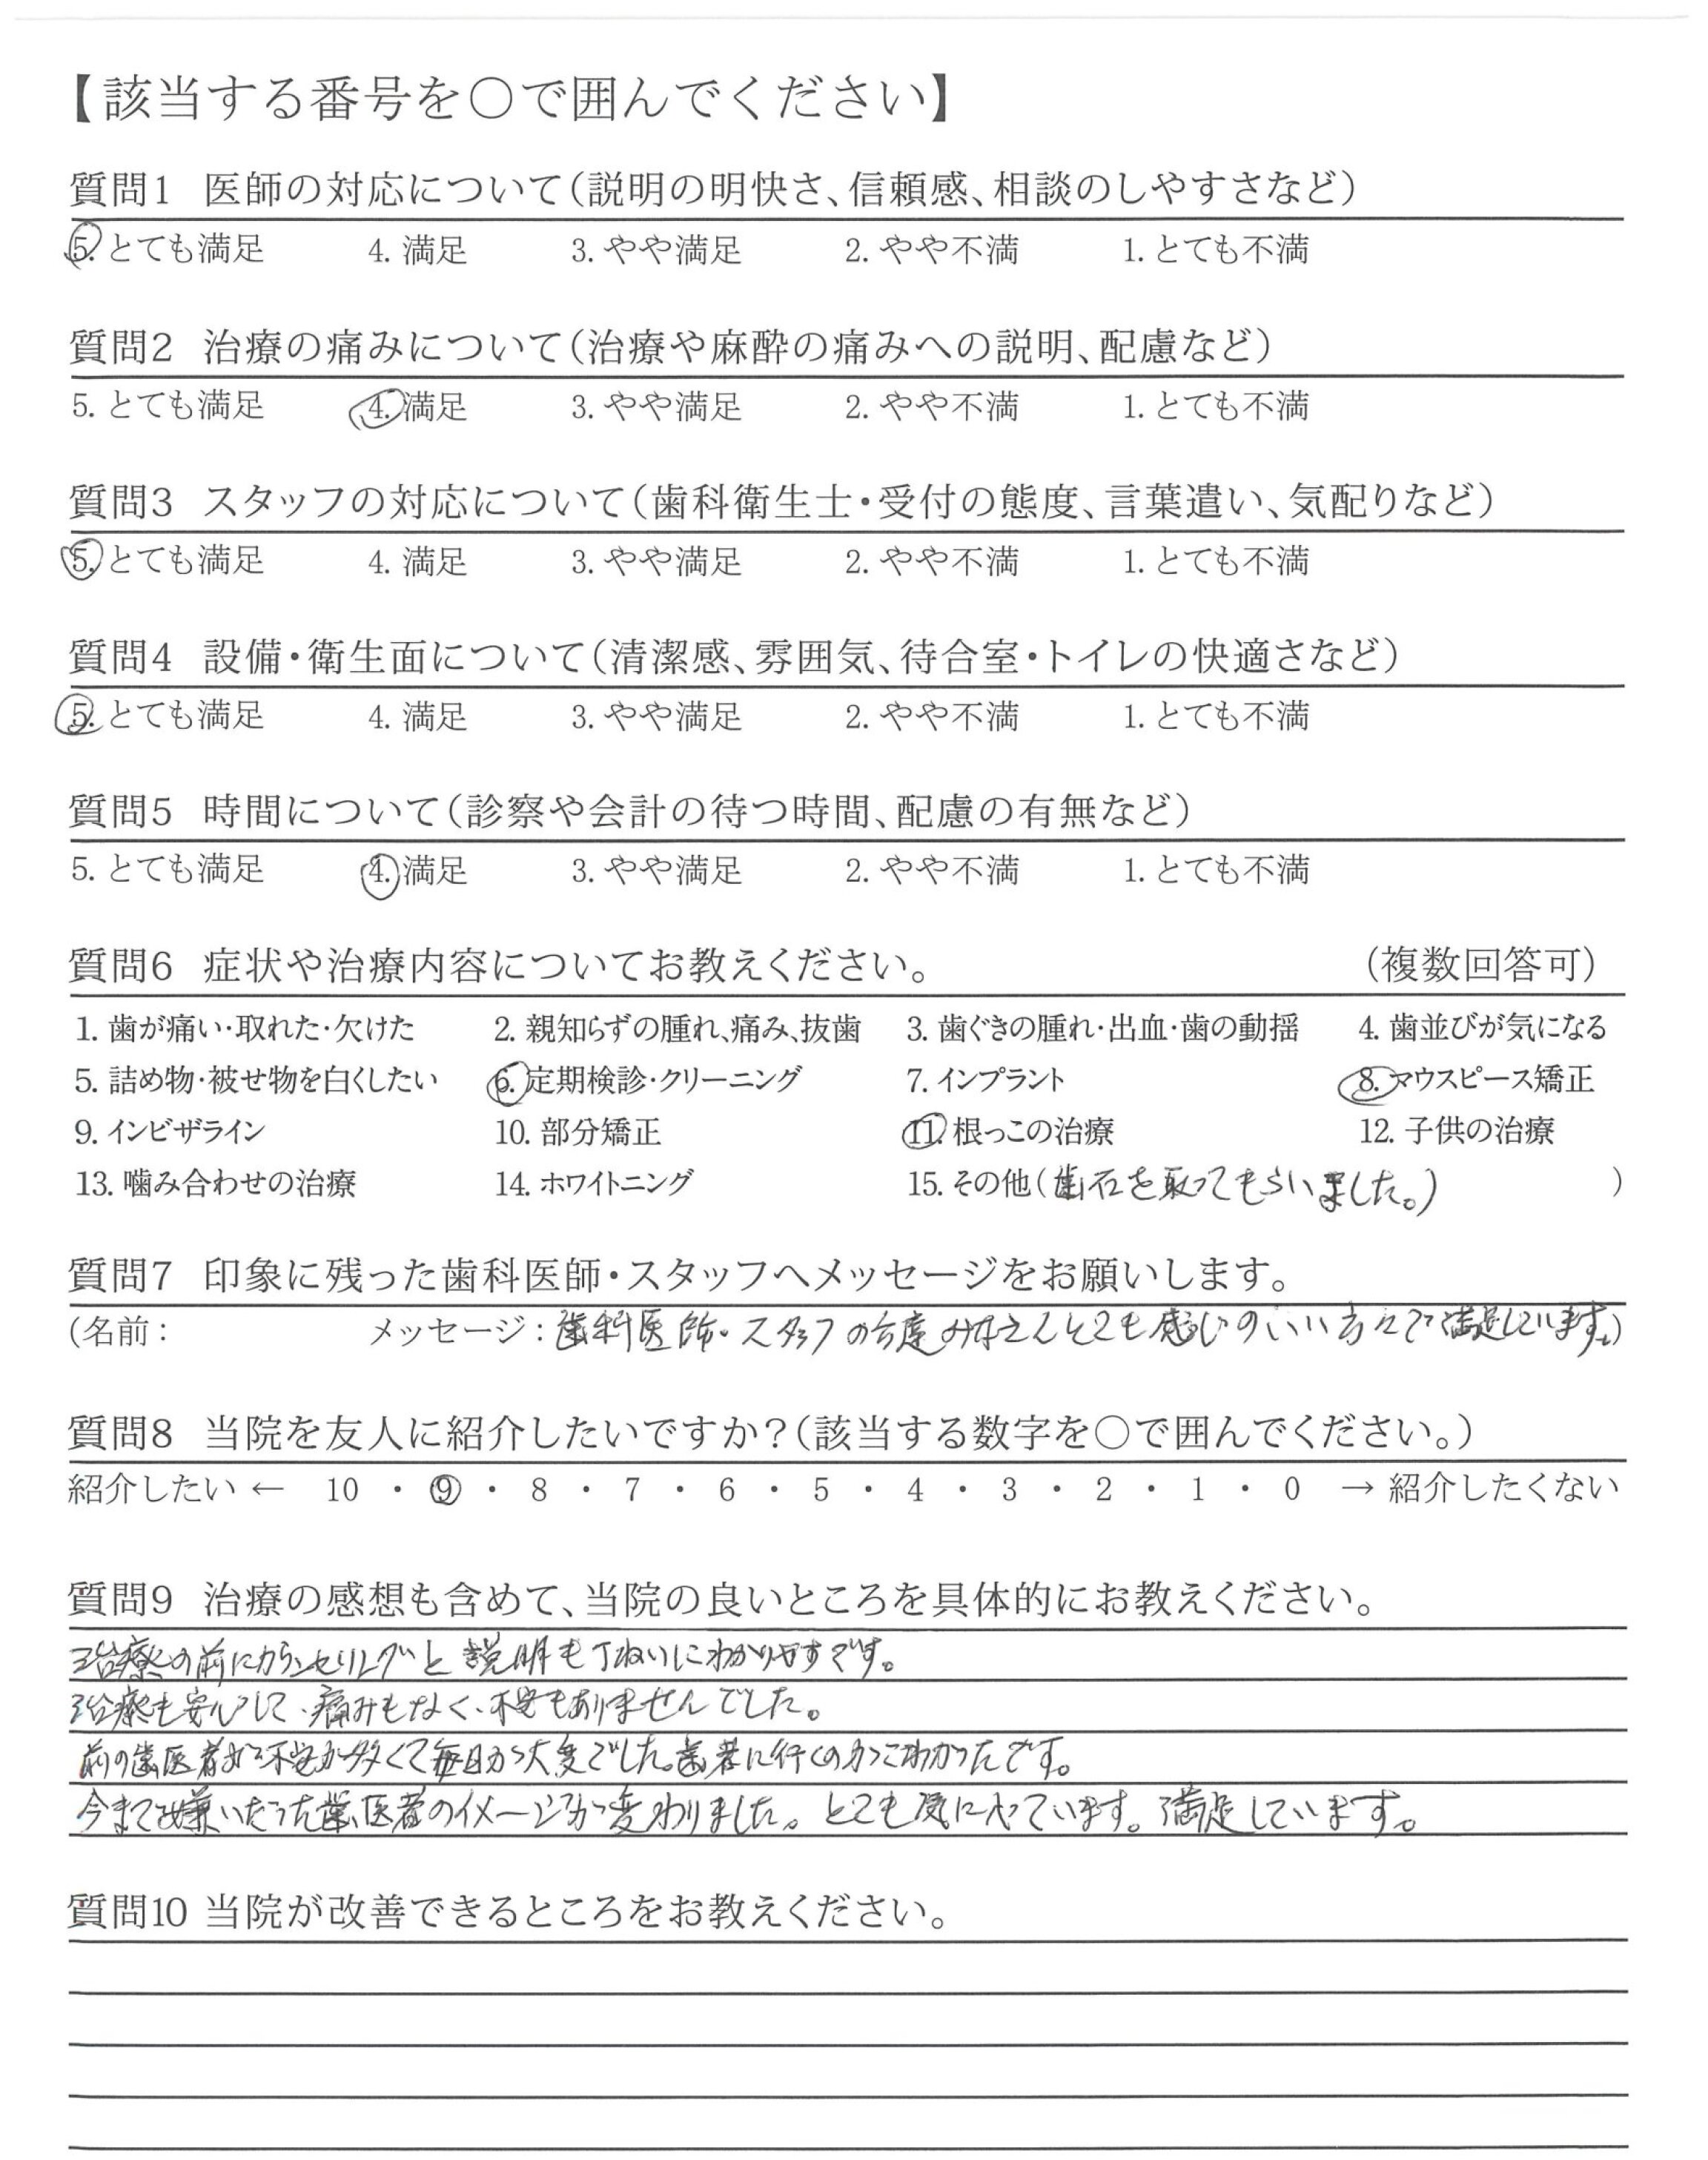 【該当する番号を○で囲んでください】
質問1 医師の対応について(説明の明快さ、信頼感、相談のしやすさなど)
5. とても満足 4. 満足 3. やや満足 2. やや不満 1. とても不満
質問2 治療の痛みについて(治療や麻酔の痛みへの説明、配慮など)
5. とても満足 4. 満足 3. やや満足 2. やや不満 1. とても不満
質問3 スタッフの対応について(歯科衛生士・受付の態度、言葉遣い、気配りなど)
5. とても満足 4. 満足 3. やや満足 2. やや不満 1. とても不満
質問4 設備・衛生面について(清潔感、雰囲気、待合室・トイレの快適さなど)
5. とても満足 4. 満足 3. やや満足 2. やや不満 1. とても不満
質問5 時間について(診察や会計の待つ時間、配慮の有無など)
5. とても満足 4. 満足 3. やや満足 2. やや不満 1. とても不満
質問6 症状や治療内容についてお教えください。 (複数回答可)
1. 歯が痛い・取れた・欠けた 2. 親知らずの腫れ、痛み、抜歯 3. 歯ぐきの腫れ・出血・歯の動揺 4. 歯並びが気になる
5. 詰め物・被せ物を白くしたい 6. 定期検診・クリーニング 7. インプラント 8. マウスピース矯正
9. インビザライン 10. 部分矯正 11. 根っこの治療 12. 子供の治療
13. 噛み合わせの治療 14. ホワイトニング 15. その他(歯石を取ってもらいました。) )
質問7 印象に残った歯科医師・スタッフへメッセージをお願いします。
(名前: メッセージ:歯科医師・スタッフの方達みなさんとても感じのいい方々で満足しています。)
質問8 当院を友人に紹介したいですか?(該当する数字を○で囲んでください。)
紹介したい ← 10 ・ 9 ・ 8 ・ 7 ・ 6 ・ 5 ・ 4 ・ 3 ・ 2 ・ 1 ・ 0 → 紹介したくない
質問9 治療の感想も含めて、当院の良いところを具体的にお教えください。
治療の前にカウンセリングと説明も丁ねいにわかりやすです。
治療も安心して、痛みもなく、不安もありませんでした。
前の歯医者が不安が多くて毎日が大変でした。歯者に行くのがこわかったです。
今まで嫌いだった歯医者のイメージが変わりました。とても気に入っています。満足しています。
質問10 当院が改善できるところをお教えください。